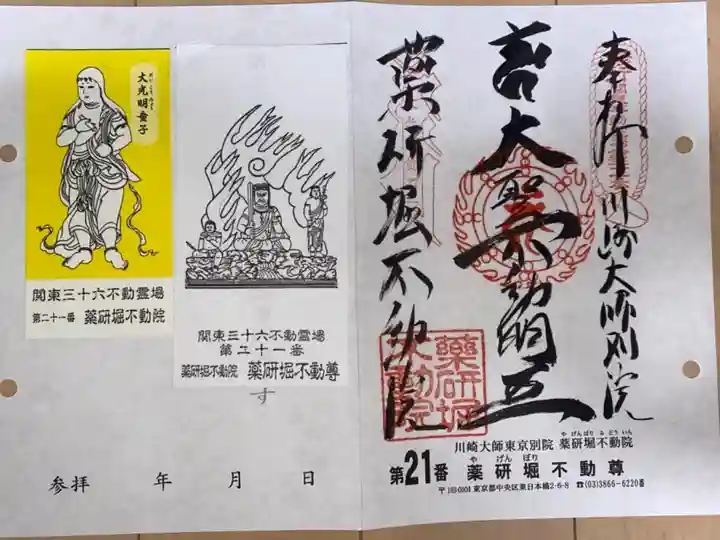 大光明童子
関東三十六不動霊場
第二十一番 薬研堀不動院
関東三十六不動霊場
第二十一番
薬研堀不動院 薬研堀不動尊
す
参拝 年 月 日
奉拝 川崎大師別院
大聖不動明王
薬研堀不動院
薬研堀
不動院
川崎大師東京別院 薬研堀不動院
や げんぼり ふ どう いん
第21番 薬研堀不動尊
や げん ぼり
東京都中央区東日本橋2-6-8 ☎(03)3866-6220番